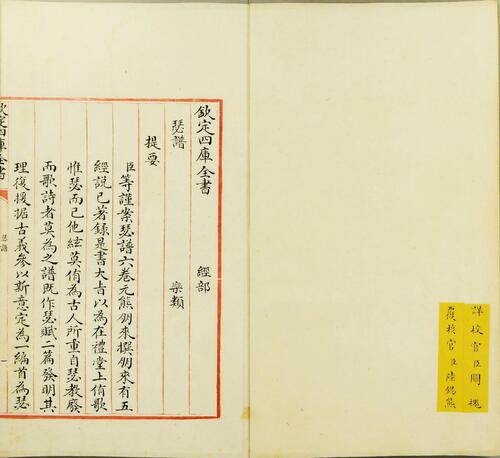 詳校官臣關槐
覆校官臣陸錫熊
欽定四庫全書 經部
瑟譜 樂類
提要
臣等謹案瑟譜六卷元熊朋來撰朋來有五
經說已著錄是書大㫖以為在禮堂上侑歌
惟瑟而已他絃莫侑為古人所重自瑟教廢
而歌詩者莫為之譜既作瑟賦二篇發明其
理復援据古義參以新意定為一編首為瑟
欽定四庫全書
瑟譜
一